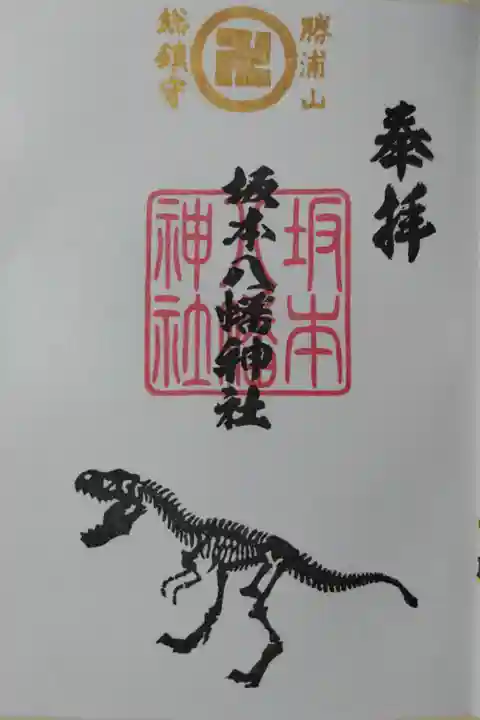 奉拝
勝浦山
総鎮守
坂本八幡神社
坂本
八幡
神社